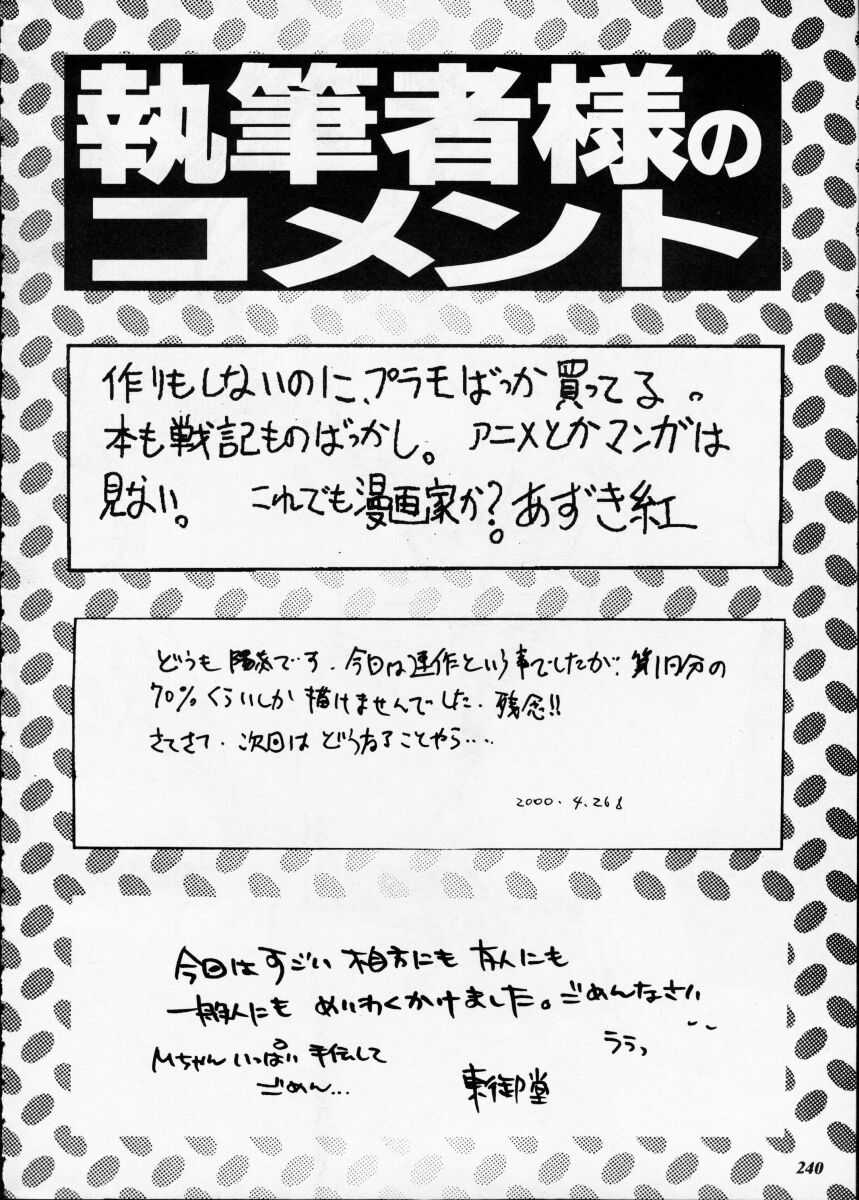 執筆者様の
コメント
作りもしないのに、プラモばっか買ってる。
本も戦記ものばっかし。アニメとかマンガは
見ない。 これでも漫画家か?。あずき紅
どうも 陽炎です。今回は連作という事でしたが、第1回分の
70%くらいしか描けませんでした。残念!!
さてさて、次回はどうなることやら....
2000.4.26
今回はすごい相方にも友人にも
一般人にもめいわくかけました。ごめんなさい
ううっ
Mちゃんいっぱい手伝して
ごめん...
東御堂
240